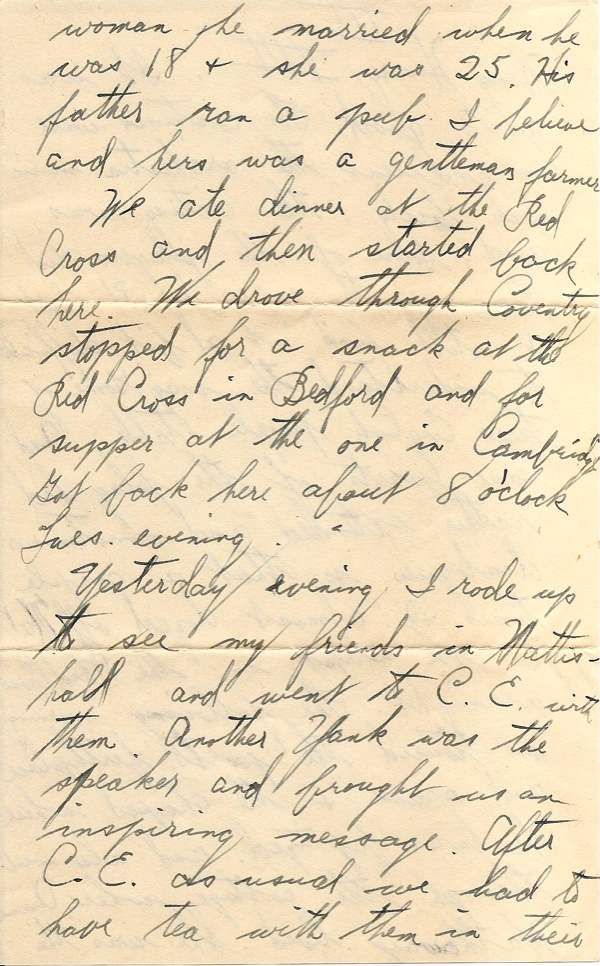 woman he married when he
was 18 + she was 25. His
father ran a pub I believe
and hers was a gentleman farmer
We ate dinner at the Red
Cross and then started back
here. We drove through Coventry
stopped for a snack at the
Red Cross in Bedford and for
supper at the one in Cambridg
Got back here about 8 o'clock
Tues. evening.
Yesterday evening I rode up
to see my friends in Mattis-
hall and went to C. E. with
them. Another Yank was the
speaker and brought us an
inspiring message. After
C. E. as usual we had to
have tea with them in their